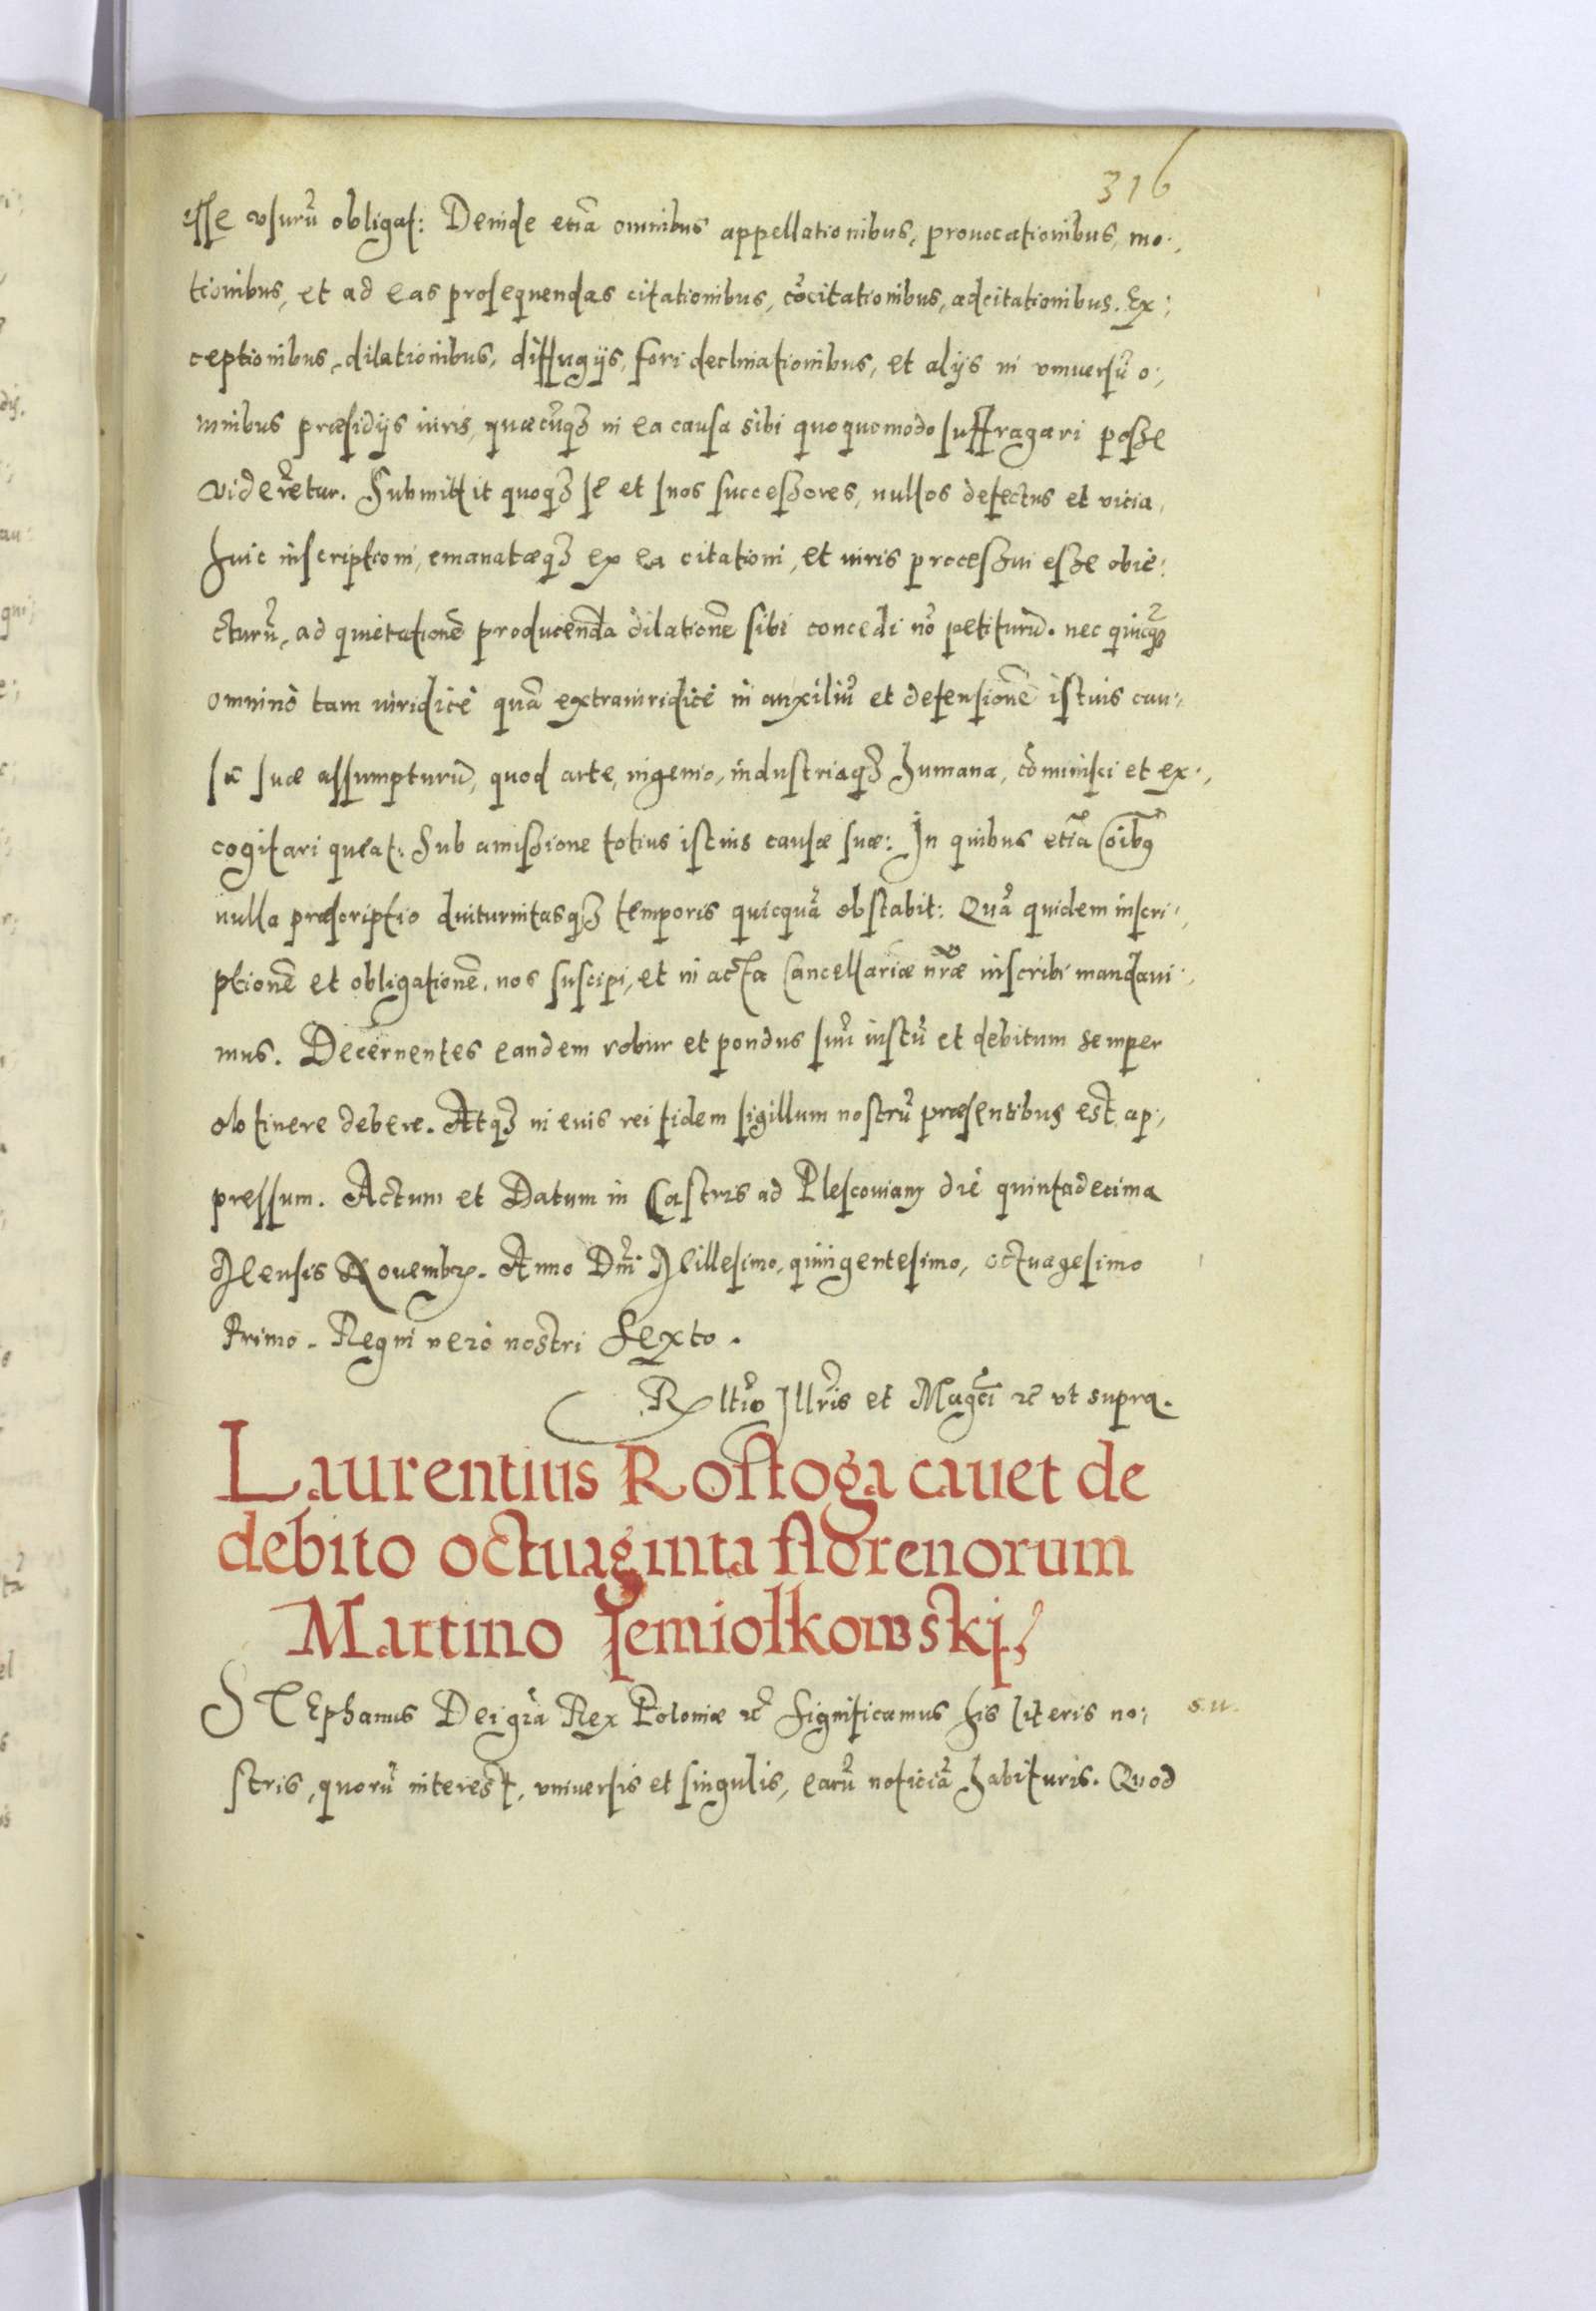 316
esse vsurũ obligat: Deinde etiã omnibus appellationibus, prouocationibus, mo:,
tionibus, et ad eas prosequendas citationibus, cõcitationibus, adcitationibus. Ex:
ceptionibus, dilationibus, diffugijs, fori declinationibus, et alijs in vniuersũ o:,
mnibus præsidijs iuris, quæcũq3 in ea causa sibi quoquomodo suffragari posse
viderẽtur. Submittit quoq3 se et suos successores, nullos defectus et vicia,
huic inscriptioni, emanatæq3 ex ea citationi, et iuris processui esse obie:
cturũ, ad quietationẽ producenda dilationẽ sibi concedi nõ petiturũ. nec quicq̃
omninò tam iuridicè quã extraiuridicè in auxiliũ et defensionẽ istius cau:,
sæ suæ assumpturũ, quod arte, ingenio, industriaq3 humana, cõminisci et ex:,
cogitari queat: Sub amissione totius istius causæ suæ: In quibus etiã oĩbꝰ
nulla præscriptio diuturnitasq3 temporis quicquã obstabit: Quã quidem inscri:,
ptionẽ et obligationẽ, nos suscipi, et in acta Cancellariæ nr̃æ inscribi mandaui:,
mus. Decernentes eandem robur et pondus suũ iustũ et debitum semper
obtinere debere. Atq3 in euis rei fidem sigillum nostrũ præsentibus est ap:,
pressum. Actum et Datum in Castris ad Plescouiam die quintadecima
Mensis Nouembrꝭ. Anno Dñi Millesimo, quingentesimo, octuagesimo
Primo. Regni verò nostri Sexto.
Rltĩo Illr̃is et Magc̃i ꝛc̃ vt supra.
Laurentius Rostoga cauet de
debito octuaginta florenorum
Martino Jemiołkowskj.
STEphanus Dei gr̃a Rex Poloniæ ꝛc̃ Significamus his literis no:
stris, quorũ interest, vniuersis et singulis, earũ noticiã habituris. Quod